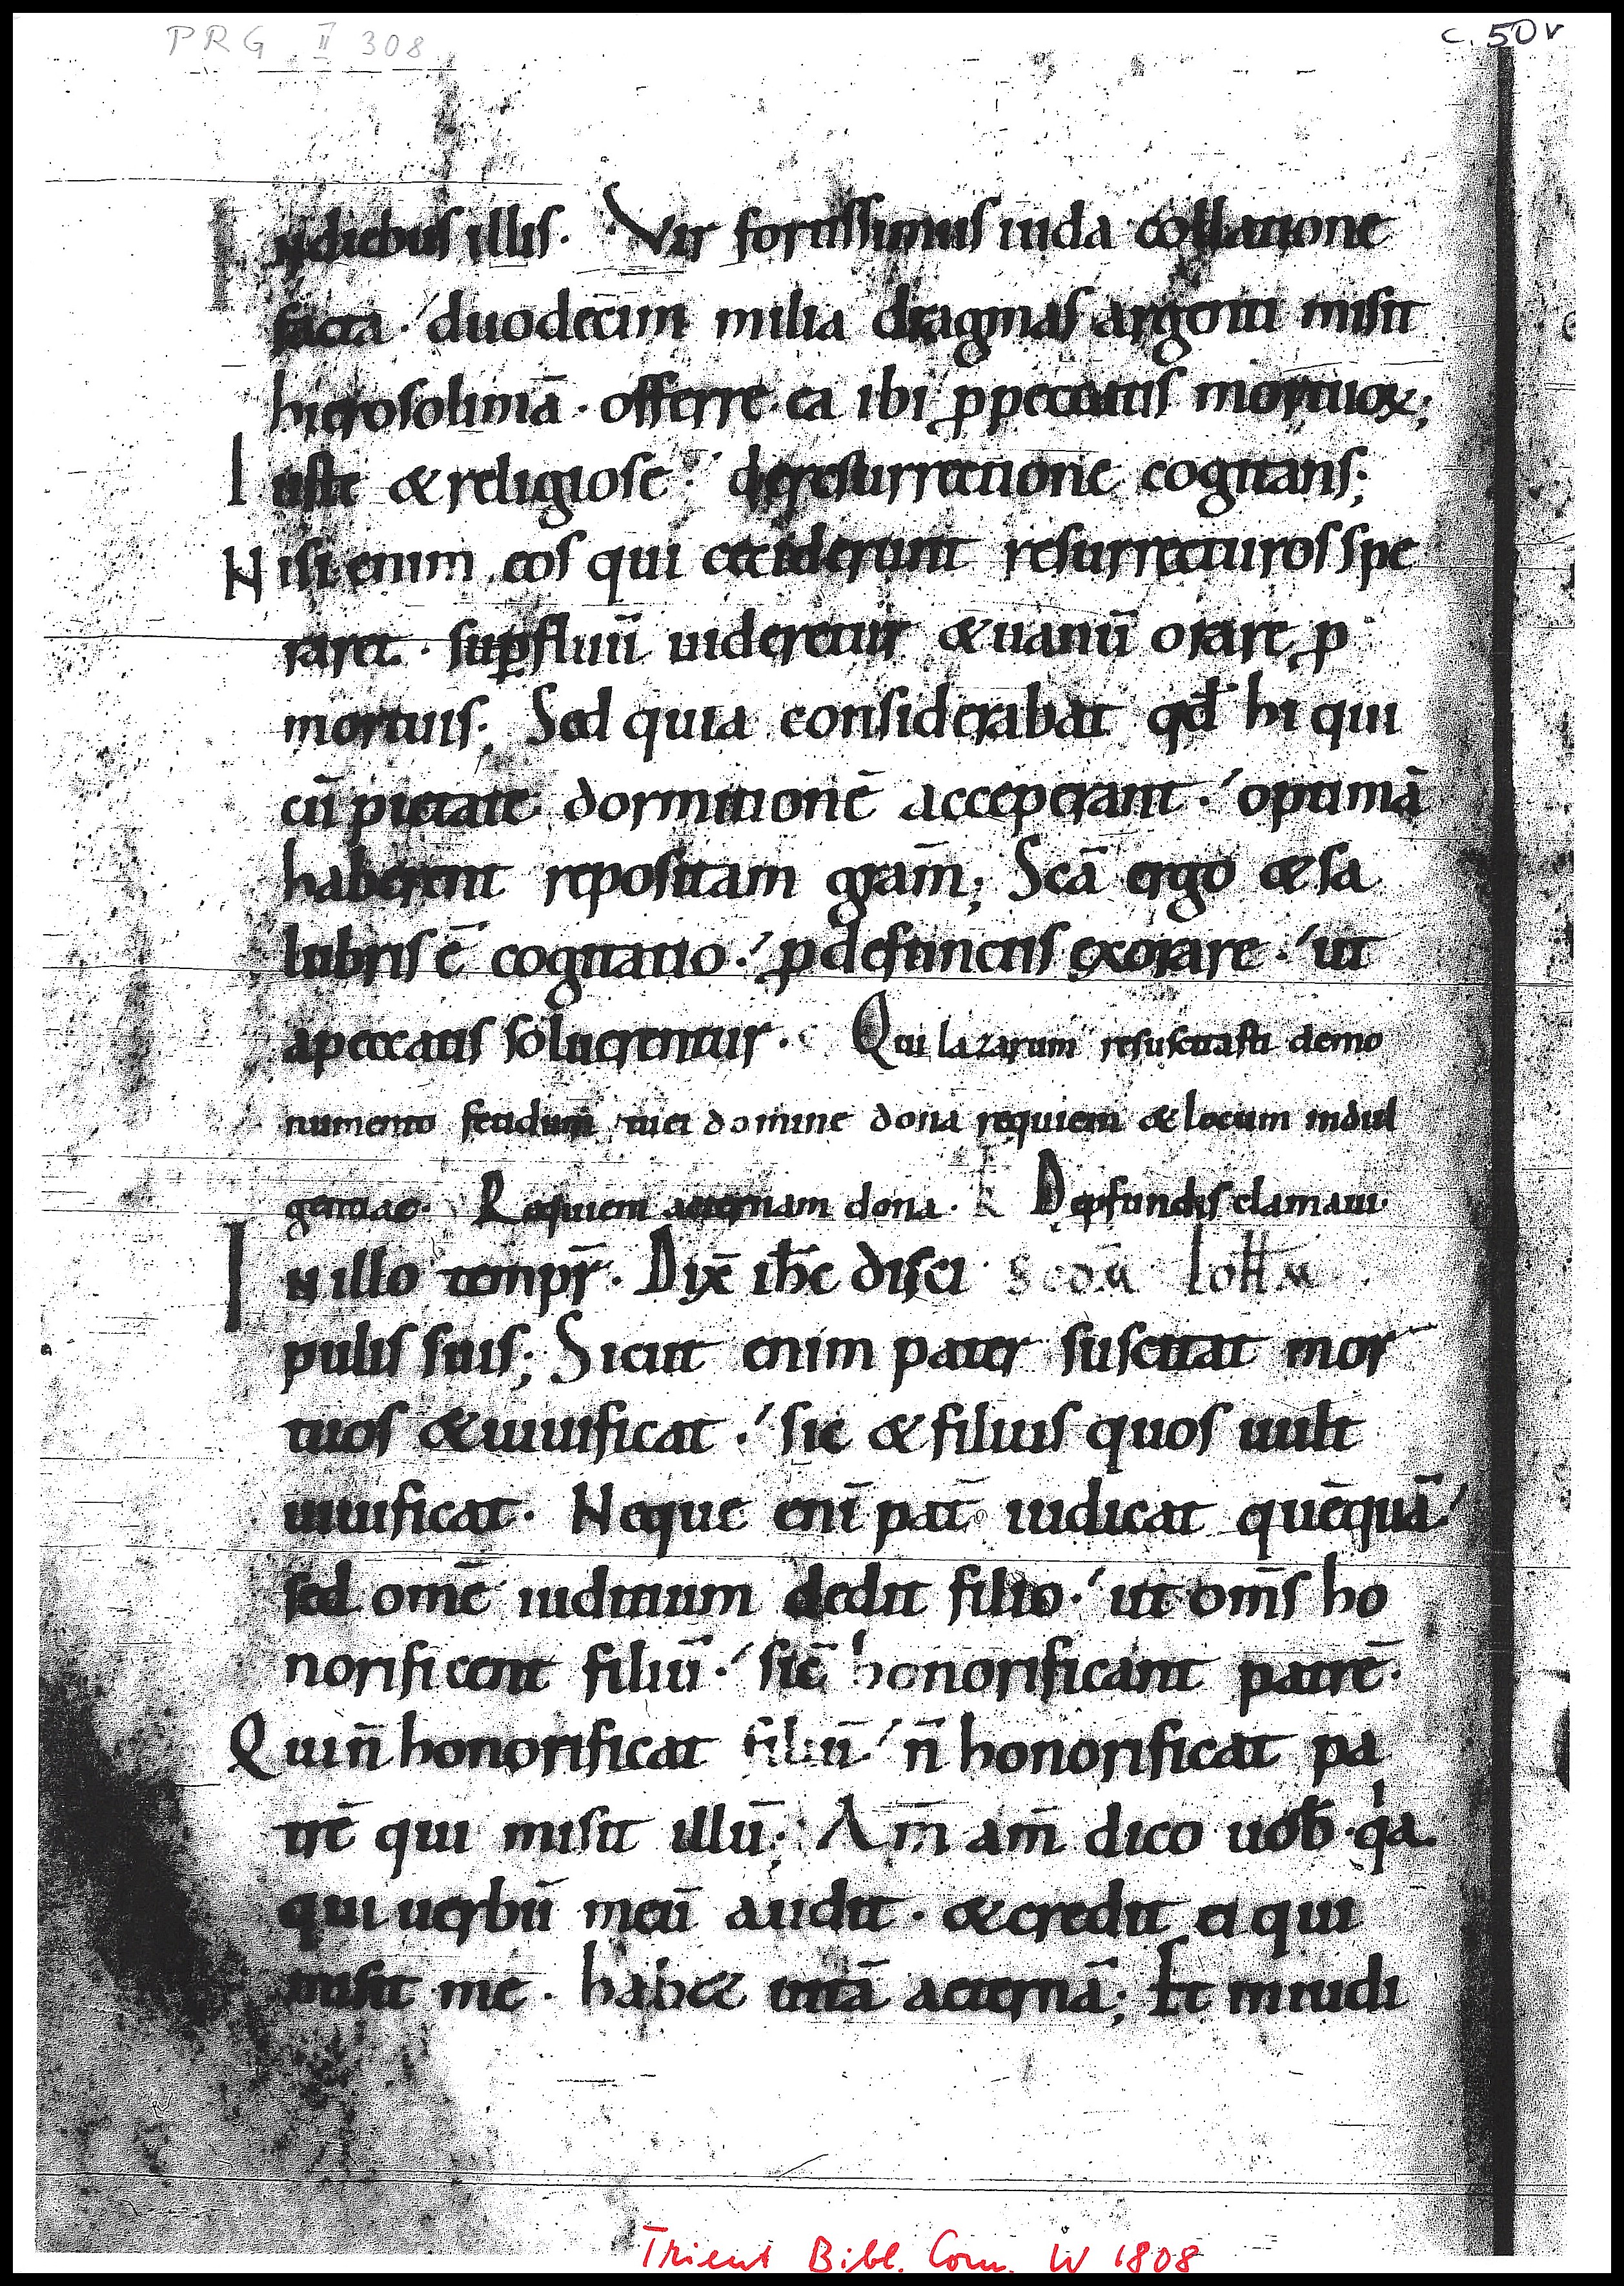 PRG II 308
c. 50v
In diebus illis. Vir fortissimus iuda collatione
facta. duodecim milia dragmas argenti misit
hierosolimā. offerre ea ibi ꝑ peccatis mortuoꝝ;
Iuste & religiose. de resurrectione cogitans;
Nisi enim eos qui ceciderunt resurrecturos spe
raret. suꝑfluū uideretur & uanū orare ꝓ
mortuis; Sed quia considerabat qđ hi qui
cū pietate dormitionē acceperant. optimā
haberent repositam gram̄; Scā ergo & sa
lubris ē cogitatio. ꝓ defunctis exorare. ut
a peccatis soluerentur. Qui lazarum resuscitasti de mo
numento fetidum tu ei domine dona requiem & locum indul
gentiae. Requiem aeternam dona. De ꝓfundis clamaui.
In illo tempr̄. Dix̄ ih̄c disci Scdm̄ Ioħ
pulis suis; Sicut enim pater suscitat mor
tuos & uiuificat. sic & filius quos uult
uiuificat. Neque enī pat̄ iudicat quēquā
sed omē iuditium dedit filio. ut om̄s ho
norificent filiū. sic̄ honorificant patrē.
Qui n̄ honorificat filiū n̄ honorificat pa
trē qui misit illū; Am̄ am̄ dico uob̄ qͥa
qui uerbū meū audit. & credit ei qui
misit me. hab& uitā aeternā; Et in iudi
Trient Bibl. Com. W 1808